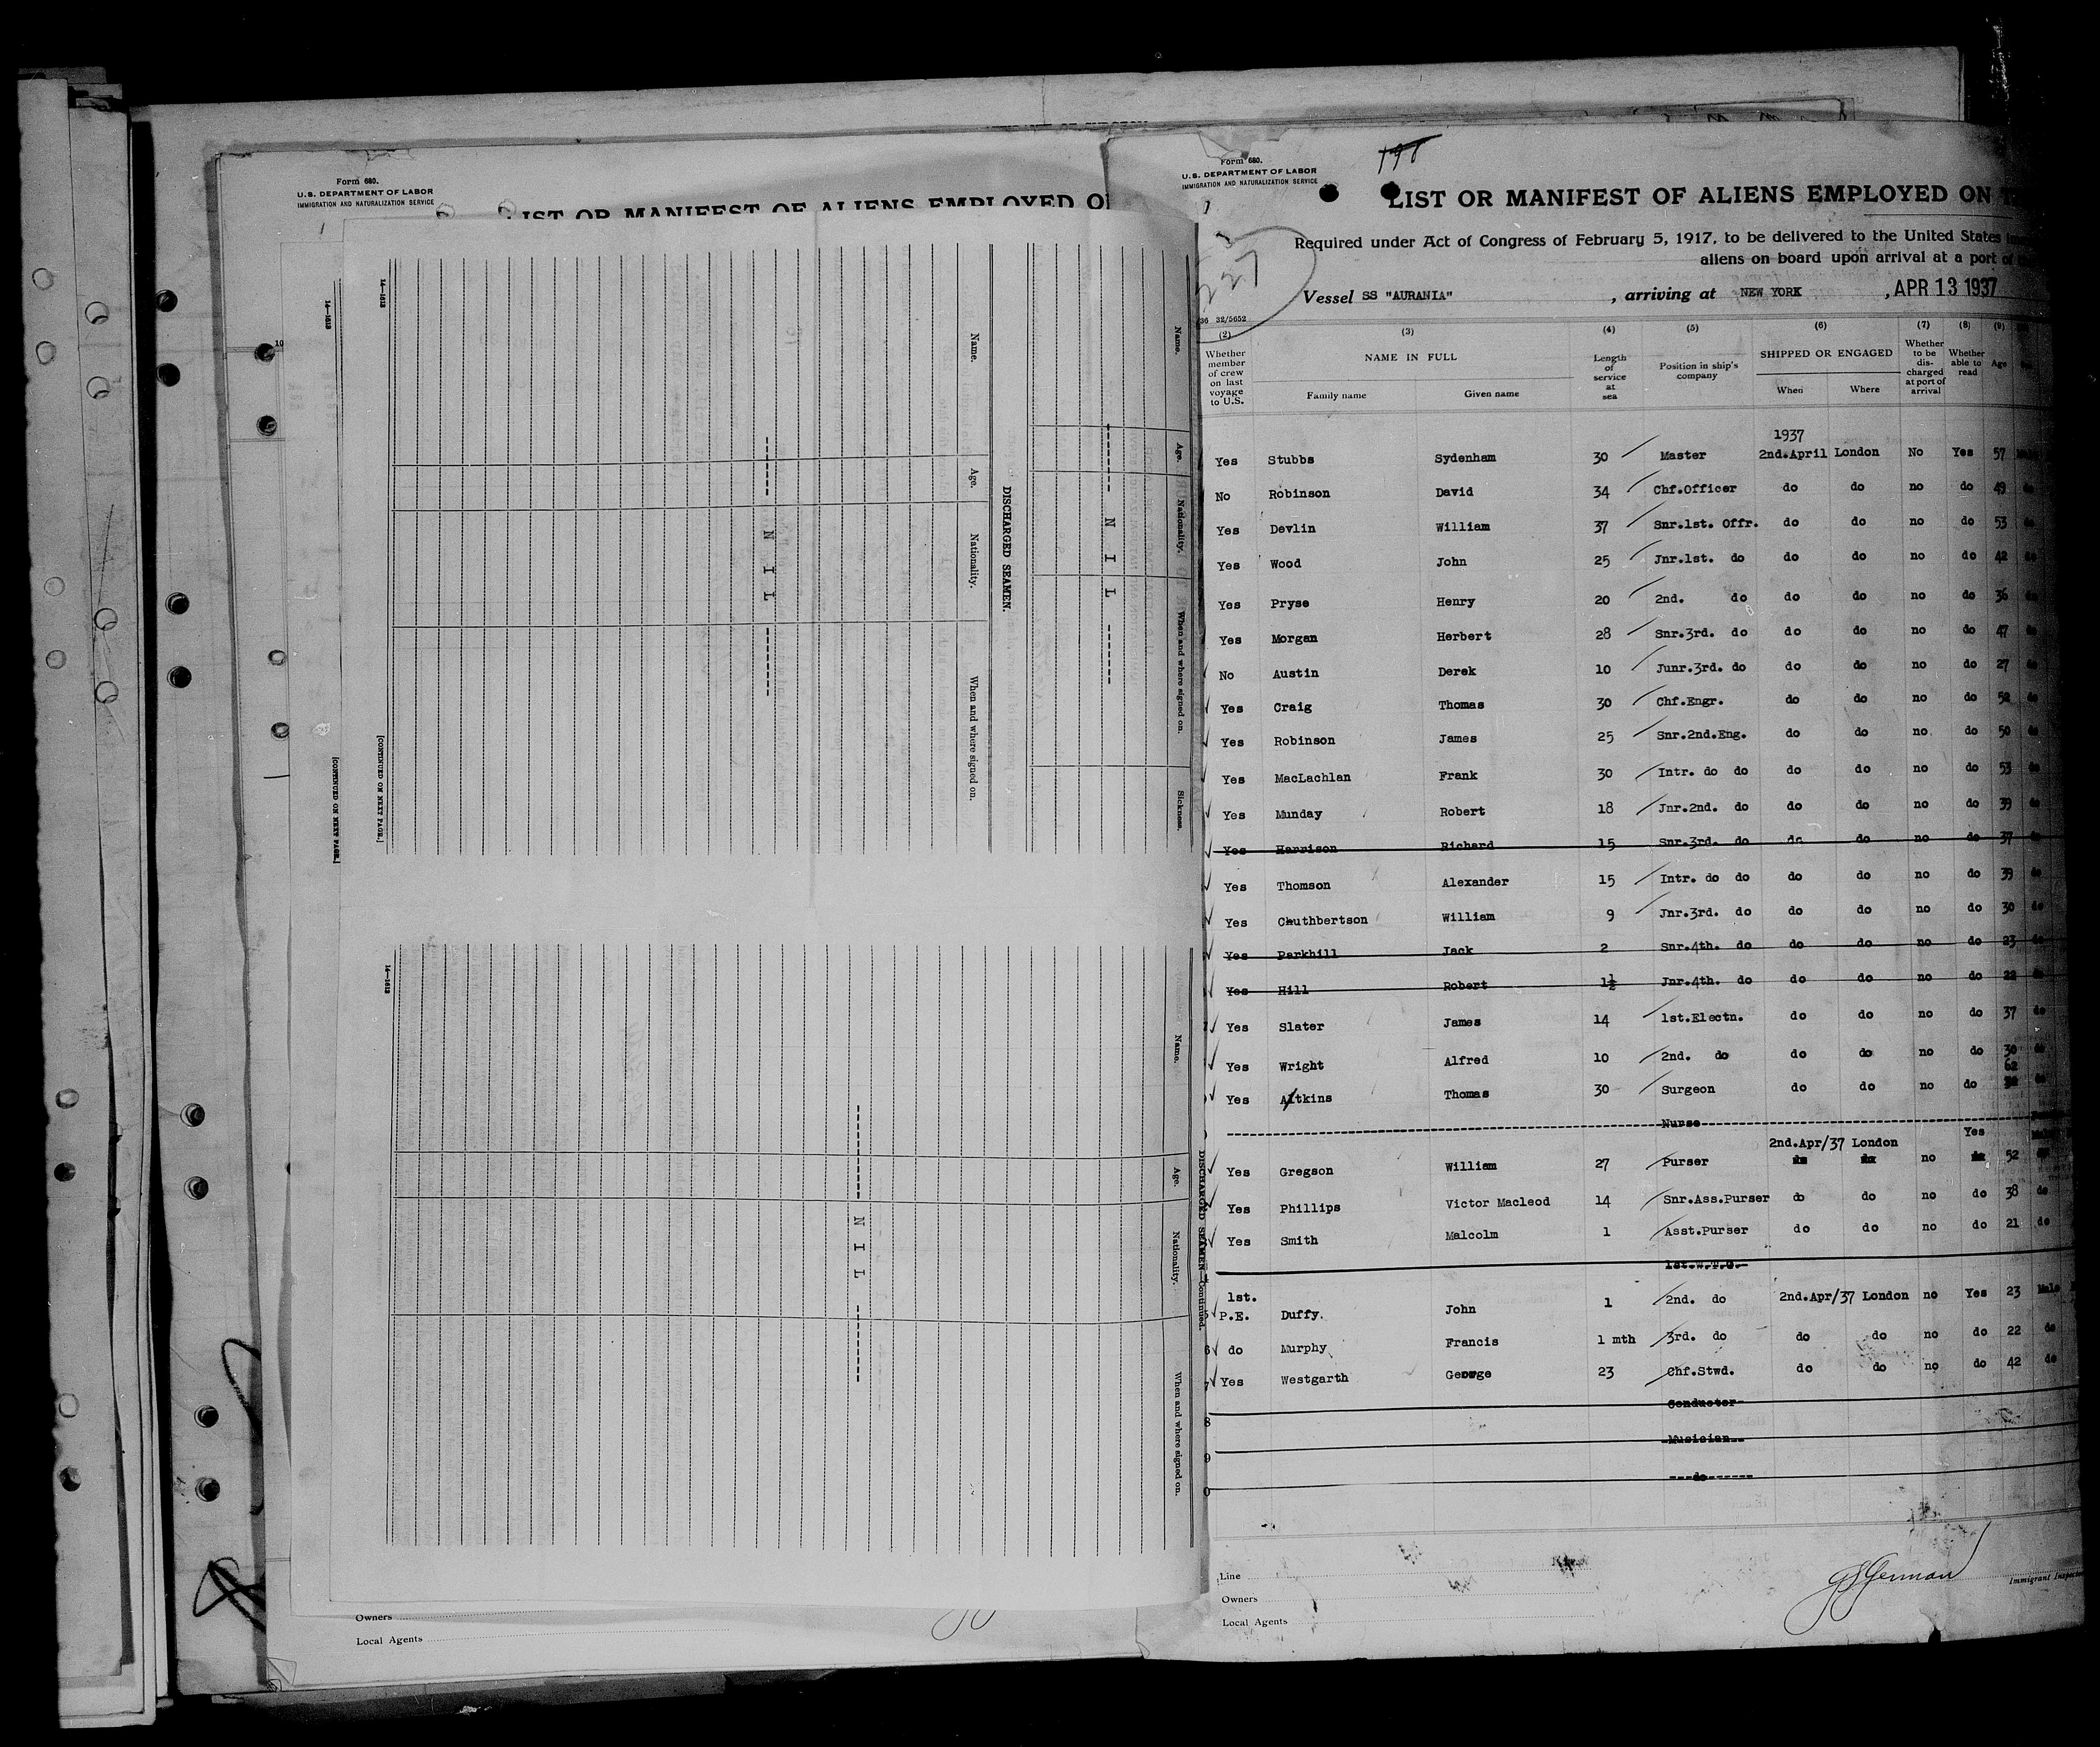 Form 680.
U.S. DEPARTMENT OF LABOR
IMMIGRATION AND NATURALIZATION SERVICE
LIST OR MANIFEST OF ALIENS EMPLOYED O
1
10
14—1613
[CONTINUED ON NEXT PAGE.]
14—1613
[CONTINUED ON NEXT PAGE.]
Name. Age. Nationality. When and where signed on.
NIL
DISCHARGED SEAMEN.
Name. Age. Nationality. When and where signed on. Sickness.
NIL
14—1613
NIL
Name. Age. Nationality. When and where signed on.
DISCHARGED SEAMEN—Continued.
Owners
Local Agents
Form 680.
U.S. DEPARTMENT OF LABOR
IMMIGRATION AND NATURALIZATION SERVICE
198
LIST OR MANIFEST OF ALIENS EMPLOYED ON T
Required under Act of Congress of February 5, 1917, to be delivered to the United States
aliens on board upon arrival at a port of
227
Vessel SS "AURANIA", arriving at NEW YORK, APR 13 1937
36 32/5652
(2) (3) (4) (5) (6) (7) (8) (9)
Whether member of crew on last voyage to U.S. NAME IN FULL Length of service at sea Position in ship's company SHIPPED OR ENGAGED Whether to be discharged at port of arrival Whether able to read Age
Family name Given name When Where
1937
Yes Stubbs Sydenham 30 Master 2nd.April London No Yes 57 Male
No Robinson David 34 Chf.Officer do do no do 49 do
Yes Devlin William 37 Snr.1st. Offr. do do no do 53 do
Yes Wood John 25 Jnr.1st. do do do no do 42 do
Yes Pryse Henry 20 2nd. do do do no do 36 do
Yes Morgan Herbert 28 Snr.3rd. do do do no do 47 do
No Austin Derek 10 Junr.3rd. do do do no do 27 do
Yes Craig Thomas 30 Chf.Engr. do do no do 52 do
Yes Robinson James 25 Snr.2nd.Eng. do do no. do 50 do
Yes MacLachlan Frank 30 Intr. do do do do no do 53 do
Yes Munday Robert 18 Jnr.2nd. do do do no do 39 do
Yes Harrison Richard 15 Snr.3rd. do do do no do 37 do
Yes Thomson Alexander 15 Intr. do do do do no do 39 do
Yes Cuthbertson William 9 Jnr.3rd. do do do no do 30 do
Yes Parkhill Jack 2 Snr.4th. do do do no do 23 do
Yes Hill Robert 1½ Jnr.4th. do do do no do 22 do
Yes Slater James 14 1st.Electn. do do no do 37 do
Yes Wright Alfred 10 2nd. do do do no do 30 do
62
Yes Aitkins Thomas 30 Surgeon do do no do do
Nurse
2nd.Apr/37 London Yes
Yes Gregson William 27 Purser no 52
Yes Phillips Victor Macleod 14 Snr.Ass.Purser do do no do 38 do
Yes Smith Malcolm 1 Asst.Purser do do no do 21 do
1st.W.T.O.
1st.
P.E. Duffy. John 1 2nd. do 2nd.Apr/37 London no Yes 23 Male
6 do Murphy Francis 1 mth 3rd. do do do no do 22 do
7 Yes Westgarth George 23 Chf.Stwd. do do no do 42 do
8 Conductor
9 Musician
0 do
Line
Owners
Local Agents
Immigrant Inspector